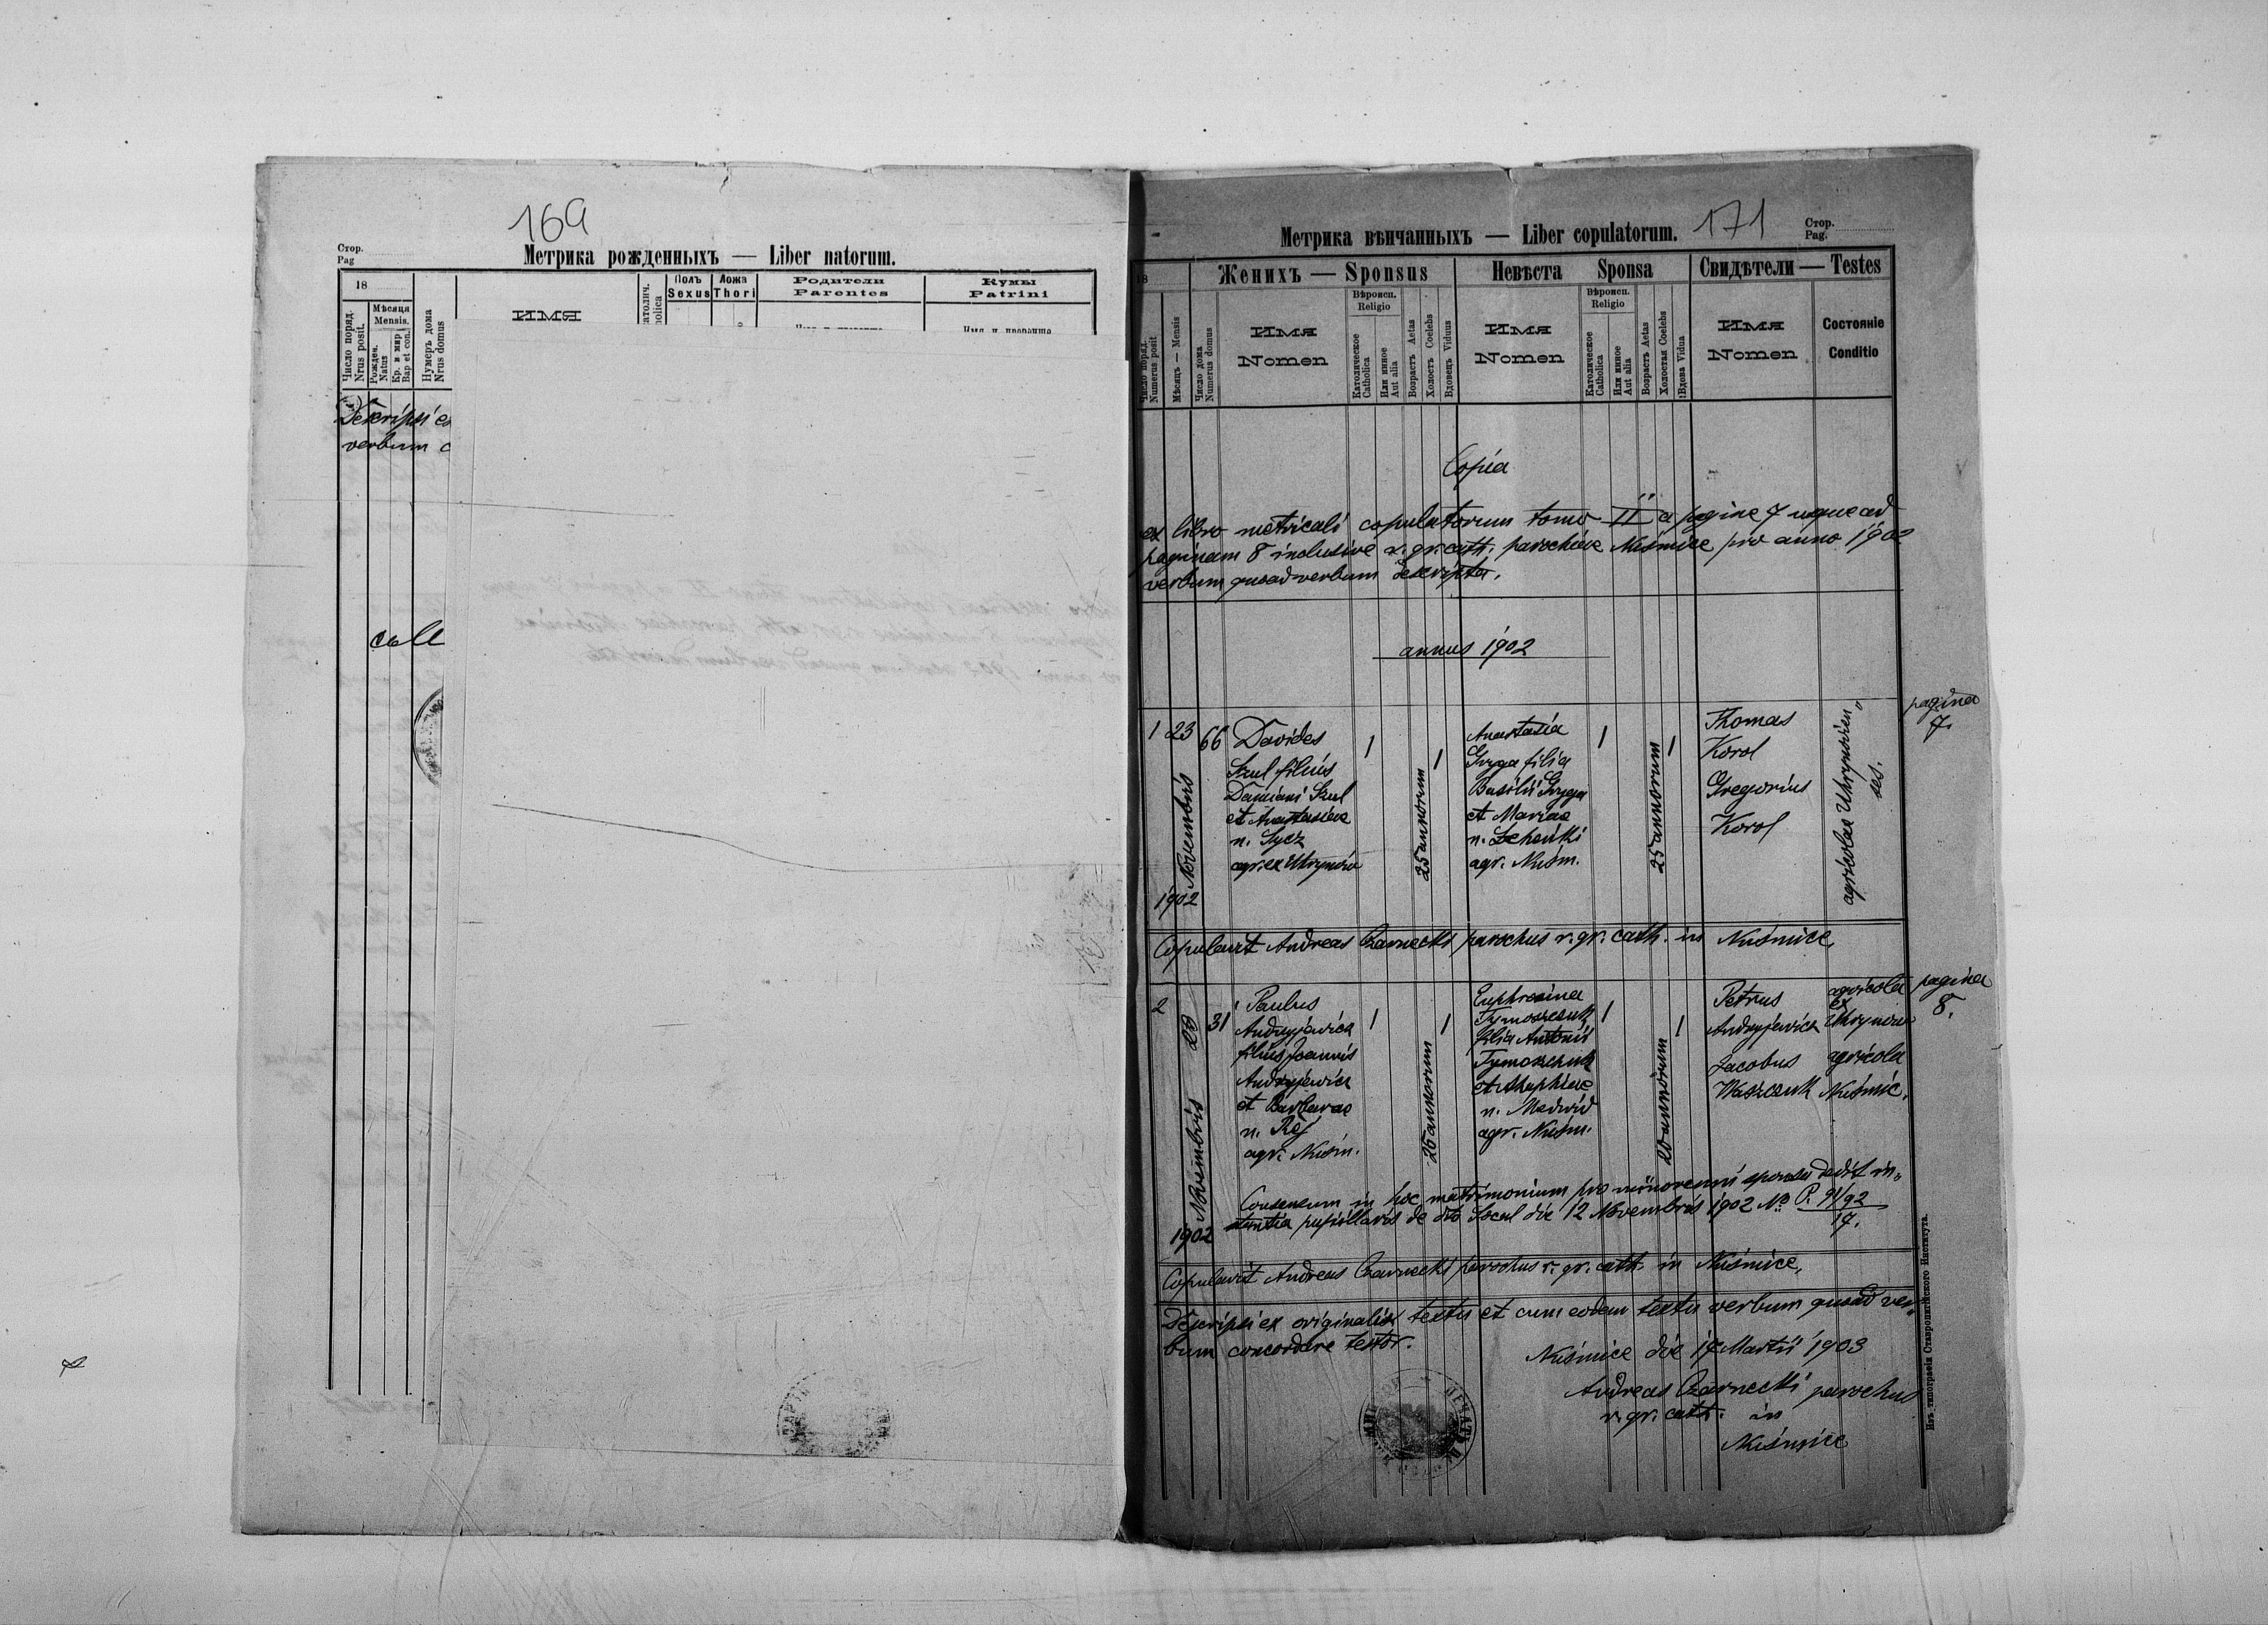 169
Стор.
Pag
Метрика рожденныхъ — Liber natorum.
18
Число поряд.
Nrus posit.
Мѣсяца
Mensis.
Рожден.
Natus
Кр. и мир
Bap et con.
Нумеръ дома
Nrus domus
ИМЯ
Полъ
Sexus
Ложа
Thori
Родители
Parentes
Кумы
Patrini
Descripsi e
verbum c
171
Стор.
Pag.
Метрика вѣнчанныхъ — Liber copulatorum.
18
Женихъ — Sponsus
Невѣста Sponsa
Свидѣтели — Testes
Число поряд.
Numerus posit
Мѣсяцъ — Mensis
Число дома
Numerus domus
Имя
Nomen
Вѣроисп.
Religio
Католическое
Catholica
Или инное
Aut alia
Возрастъ Aetas
Холостъ Coelebs
Вдовецъ Viduus
Имя
Nomen
Вѣроисп.
Religio
Католическое
Catholica
Или инное
Aut alia
Возрастъ Aetas
Холостая Coelebs
Вдова Vidua
Имя
Nomen
Состояніе
Conditio
Copia
ex libro metricali copulatorum tomo II a pagine 7 usque ad
paginam 8 inclusive r. gr. cath. parochiae Nuśmice pro anno 1902
verbum quoad verbum descripta.
annus 1902
pagina
7.
1 23 66
Novembris
1902
Davides
Szul filius
Damiani Szul
et Anastasiae
n. Sycz
agr. ex Uhrynów
1
25 annorum
1
Anastasia
Gryga filia
Basilii Gryga
et Mariae
agr. Nuśm.
1
25 annorum
1
Thomas
Korol
Gregorius
Korol
agricolae Uhrynovien„
ses.
Copulavit Andreas Czarnecki parochus r. gr. cath. in Nuśmice.
pagina
8.
2
31
Novembris
1902
Paulus
Andryjewicz
filius Joannis
Andryjewicz
et Barbarae
n. Rej
agr. Nuśm.
1
1
Euphrosina
Tymoszczuk
filia Antonii
Tymoszczuk
n. Medwid
agr. Nuśm.
1
20 annorum
1
Petrus
Andryjewicz
agricola
ex
Uhrynów
Jacobus
Waszczuk
agricola
Nuśmic.
Consensum in hoc matrimonium pro minorenni sponsa dedit in„
stantia pupillaris de dto Socal die 12 Novembris 1902 No P. 91/92
17.
Copulavit Andreas Czarnecki parochus r. gr. cath. in Nuśmice.
Descripsi ex originalis textu et cum eodem textu verbum quoad ver„
bum concordare testor.
Nuśmice die 17 Martii 1903
Andreas Czarnecki parochus
r. gr. cath. in
Nuśmice
Изъ типографіи Ставропигійского Института.